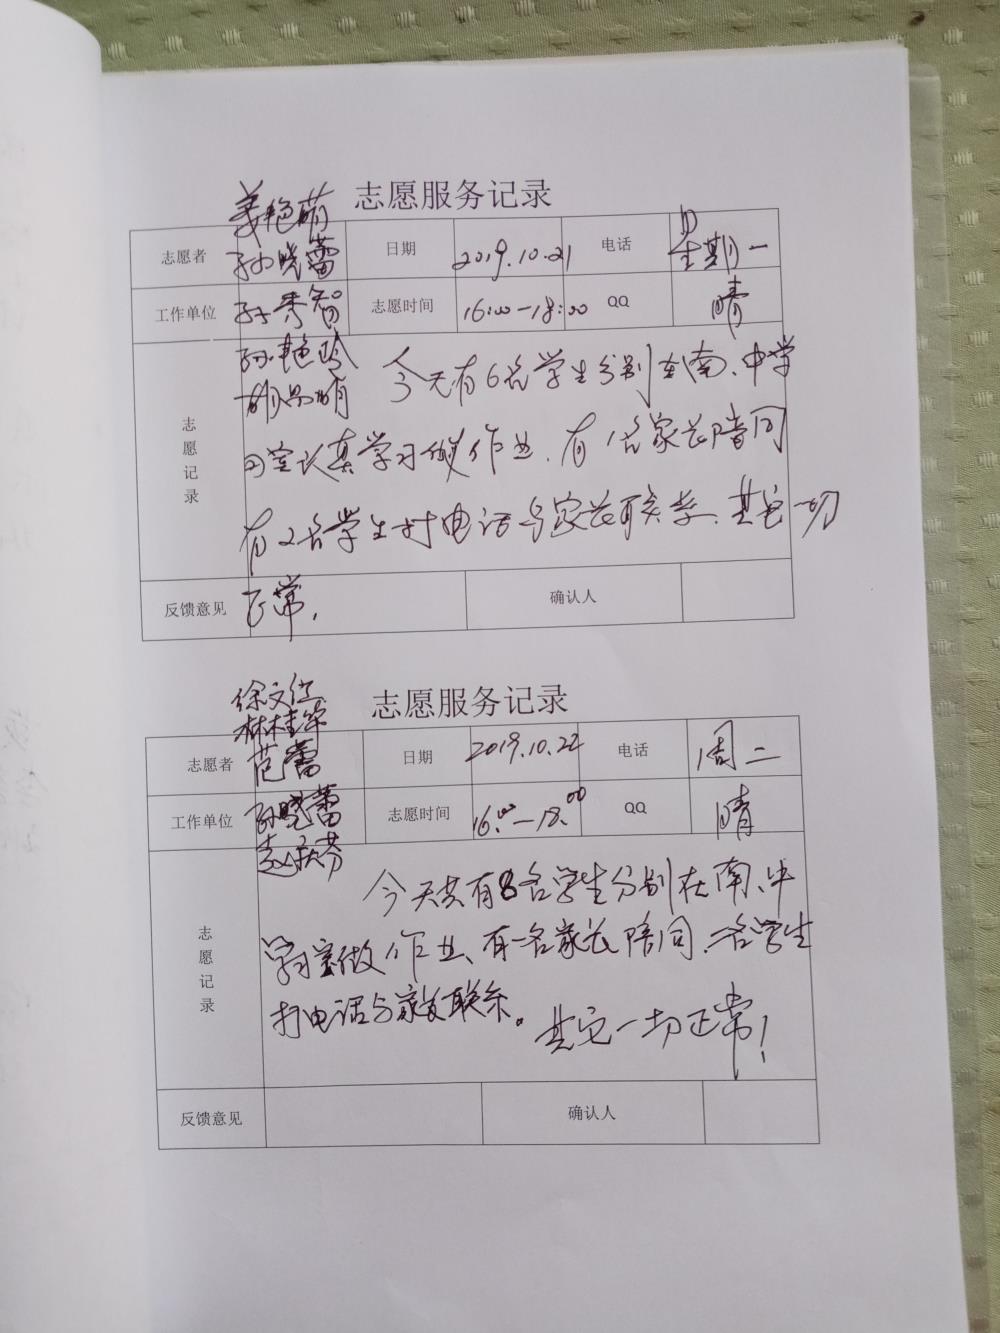 志愿服务记录
姜艳萌
志愿者 孙晓蕾 日期 2019.10.21 电话 星期一
工作单位 孙秀智 志愿时间 16:00-18:00 QQ 晴
孙艳玲
今天有6名学生分别在南、中学
志愿记录
习室认真学习做作业、有1名家长陪同
有2名学生打电话与家长联系、其它一切
反馈意见 正常, 确认人
徐文红 志愿服务记录
林桂华
志愿者 范蕾 日期 2019.10.22 电话 周二
工作单位 孙晓蕾 志愿时间 16:00-18:00 QQ 晴
赵秋芬
今天共有8名学生分别在南、中
志愿记录
学习室做作业、有一名家长陪同、二名学生
打电话与家长联系。其它一切正常!
反馈意见 确认人